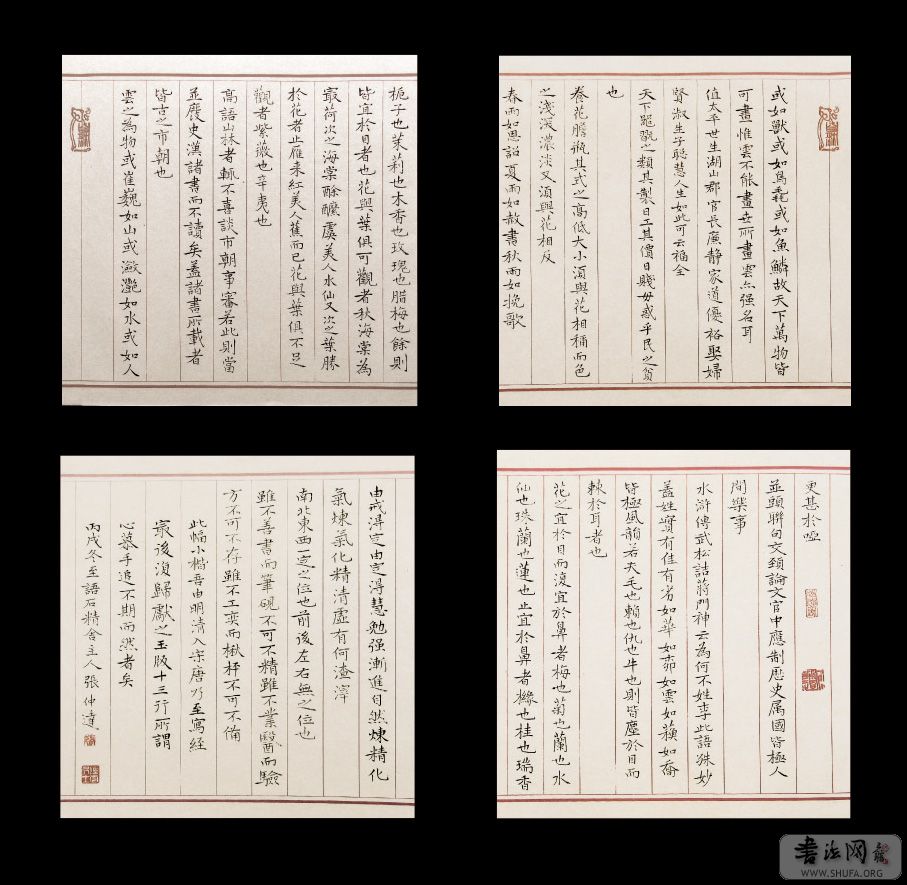 更甚於啞
並頭聯句交頸論文宮中應制歷史属國皆極人
間樂事
水滸傳武松詰蔣門神云為何不姓李此語殊妙
蓋姓實有佳有劣如華如茆如雲如蘇如喬
皆極風韻若夫毛也賴也仇也牛也則皆塵於目而
棘於耳者也
花之宜於目而復宜於鼻者梅也菊也蘭也水
仙也珠蘭也蓮也止宜於鼻者櫞也桂也瑞香
梔子也茉莉也木香也玫瑰也腊梅也餘則
皆宜於目者也花與葉俱可觀者秋海棠為
最荷次之海棠酴醿虞美人水仙又次之葉勝
於花者止雁来紅美人蕉而已花與葉俱不足
觀者紫薇也辛夷也
高語山林者輒不喜談市朝事審若此則當
並廢史漢諸書而不讀矣蓋諸書所載者
皆古之市朝也
雲之為物或崔巍如山或瀲灔如水或如人
或如獸或如鳥毳或如魚鱗故天下萬物皆
可畫惟雲不能畫世所畫雲亦强名耳
值太平世生湖山郡官長廉静家道優裕娶婦
賢淑生子聪慧人生如此可云福全
天下器玩之類其製日工其價日賤毋惑乎民之貧
也
養花膽瓶其式之高低大小湏與花相稱而色
之淺深濃淡又湏與花相反
春雨如恩詔夏雨如赦書秋雨如挽歌
由戒淂定由定淂慧勉强漸進自然煉精化
氣煉氣化精清虛有何渣滓
南北東西一定之位也前後左右無之位也
雖不善書而筆硯不可不精雖不業醫而驗
方不可不存雖不工奕而楸枰不可不備
此幅小楷吾由明清入宋唐乃至寫經
最後復歸獻之玉版十三行所謂
心慕手追不期而然者矣
丙戌冬至語石精舍主人張仲達
書法网
WWW.SHUFA.ORG